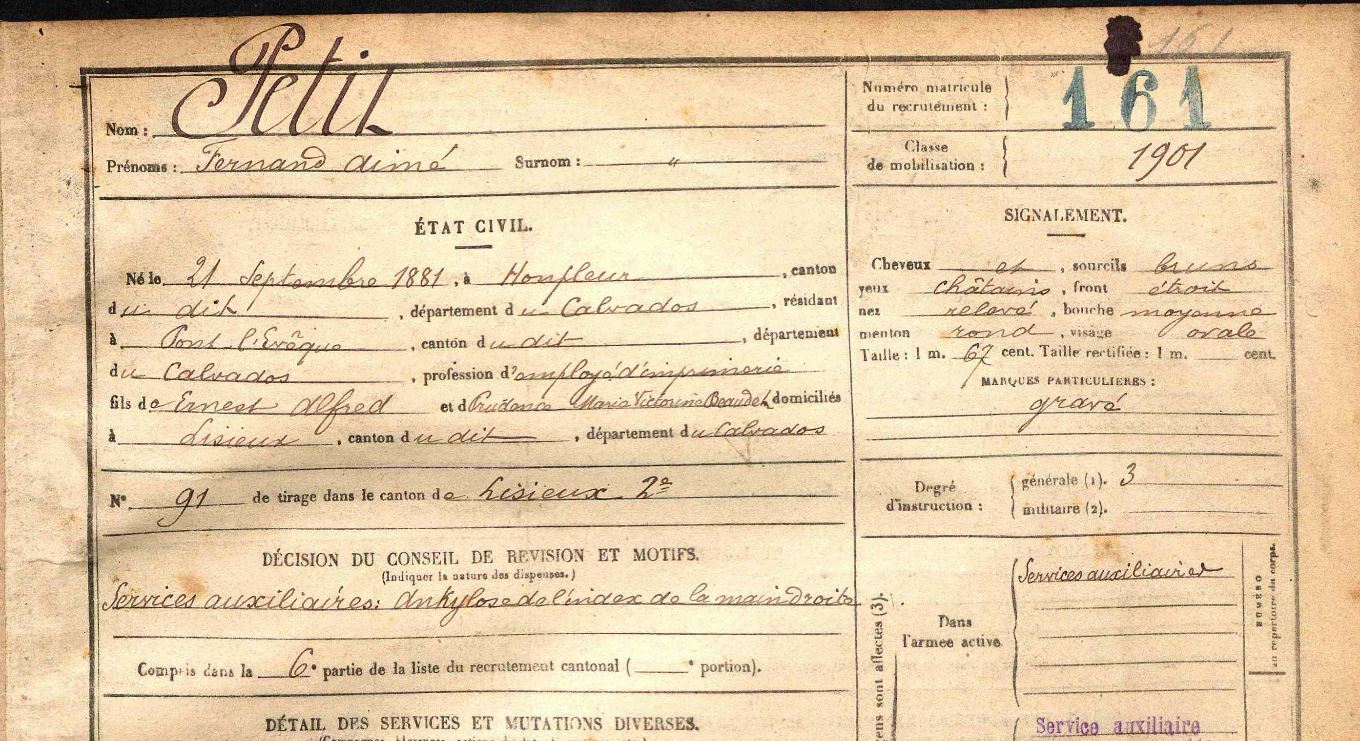 161
Petit
Nom :
Prénoms : Fernand Aimé Surnom : "
Numéro matricule
du recrutement : 161
Classe
de mobilisation : 1901
ÉTAT CIVIL.
Né le 21 Septembre 1881, à Honfleur, canton
du dit, département du Calvados, résidant
à Pont l'Evêque, canton du dit, département
du Calvados, profession d'employé d'imprimerie
fils de Ernest Alfred et de Prudence Marie Victorine domiciliés
à Lisieux, canton du dit, département du Calvados
N° 91 de tirage dans le canton de Lisieux 2e
DÉCISION DU CONSEIL DE REVISION ET MOTIFS.
(Indiquer la nature des dispenses.)
Services auxiliaires : Ankylose de l'index de la main droite
Compris dans la 6e partie de la liste du recrutement cantonal ( e portion).
DÉTAIL DES SERVICES ET MUTATIONS DIVERSES.
SIGNALEMENT.
Cheveux et, sourcils bruns
yeux châtains, front étroit
nez relevé, bouche moyenne
menton rond, visage ovale
Taille : 1 m. 67 cent. Taille rectifiée : 1 m. cent.
MARQUES PARTICULIÈRES :
gravé
Degré
d'instruction :
générale (1). 3
militaire (2).
Dans
l'armée active
Services auxiliaires
Service auxiliaire
NUMÉRO
au répertoire du corps.
sont affectés (3).